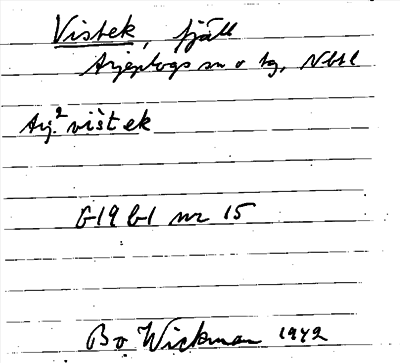 Vistek, fjäll
Arjeplogs sn o tg, Nbtl
Arj.² vištek
G19 bl nr 15
Bo Wickman 1942